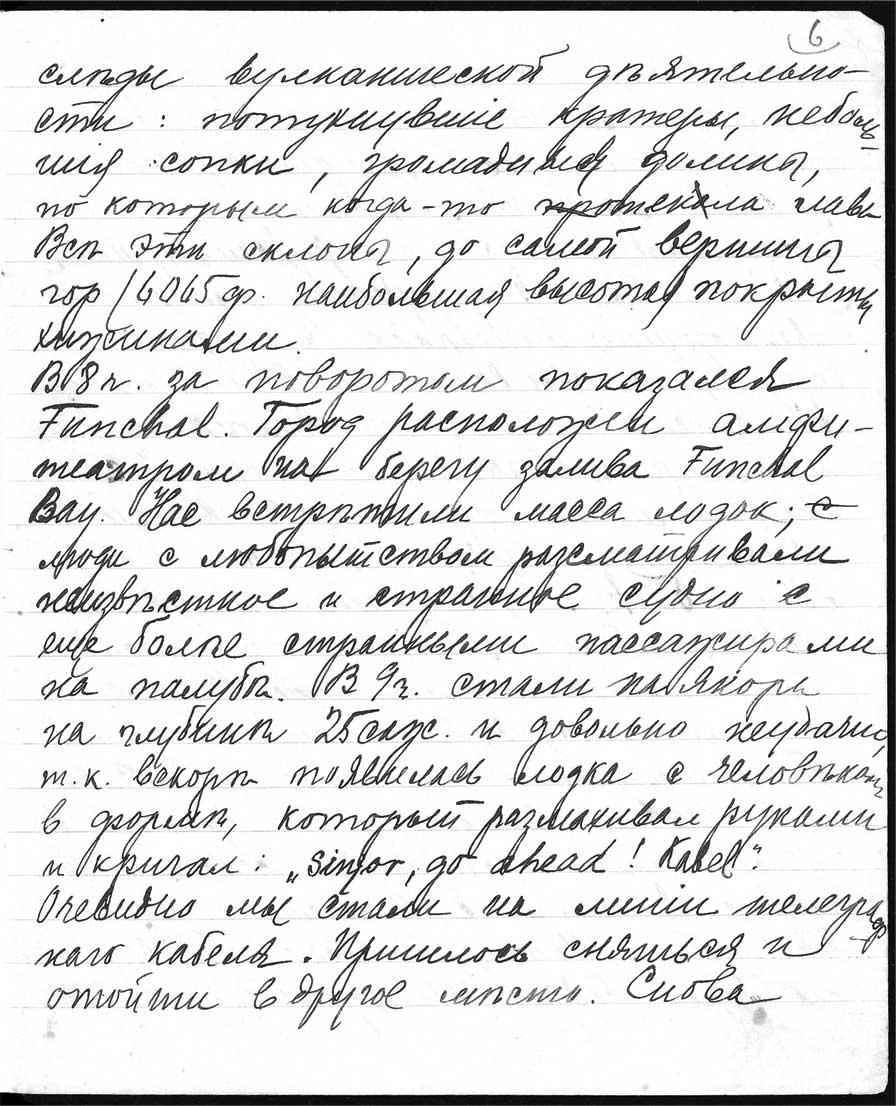 6
слѣды вулканической дѣятельно-
сти: потухнувшіе кратеры, неболь-
шія сопки, громадныя долины,
по которым когда-то протекала лава
Всѣ эти склоны, до самой вершины
гор (6065 ф. наибольшая высота) покрыты
хижинами.
В 8 ч. за поворотом показался
Funchal. Город расположен амфи-
театром на берегу залива Funchal
Bay. Нас встрѣтили масса лодок; с
люди с любопытством разсматривали
неизвѣстное и странное судно с
еще болѣе странными пассажирами
на палубѣ. В 9 ч. стали на якорь
на глубинѣ 25 саж. и довольно неудачно,
т.к. вскорѣ появилась лодка с человѣком
в формѣ, который размахивал руками
и кричал: „Sinjor, go ahead! Kabel".
Очевидно мы стали на линіи телеграф
наго кабеля. Пришлось сняться и
отойти в другое мѣсто. Снова